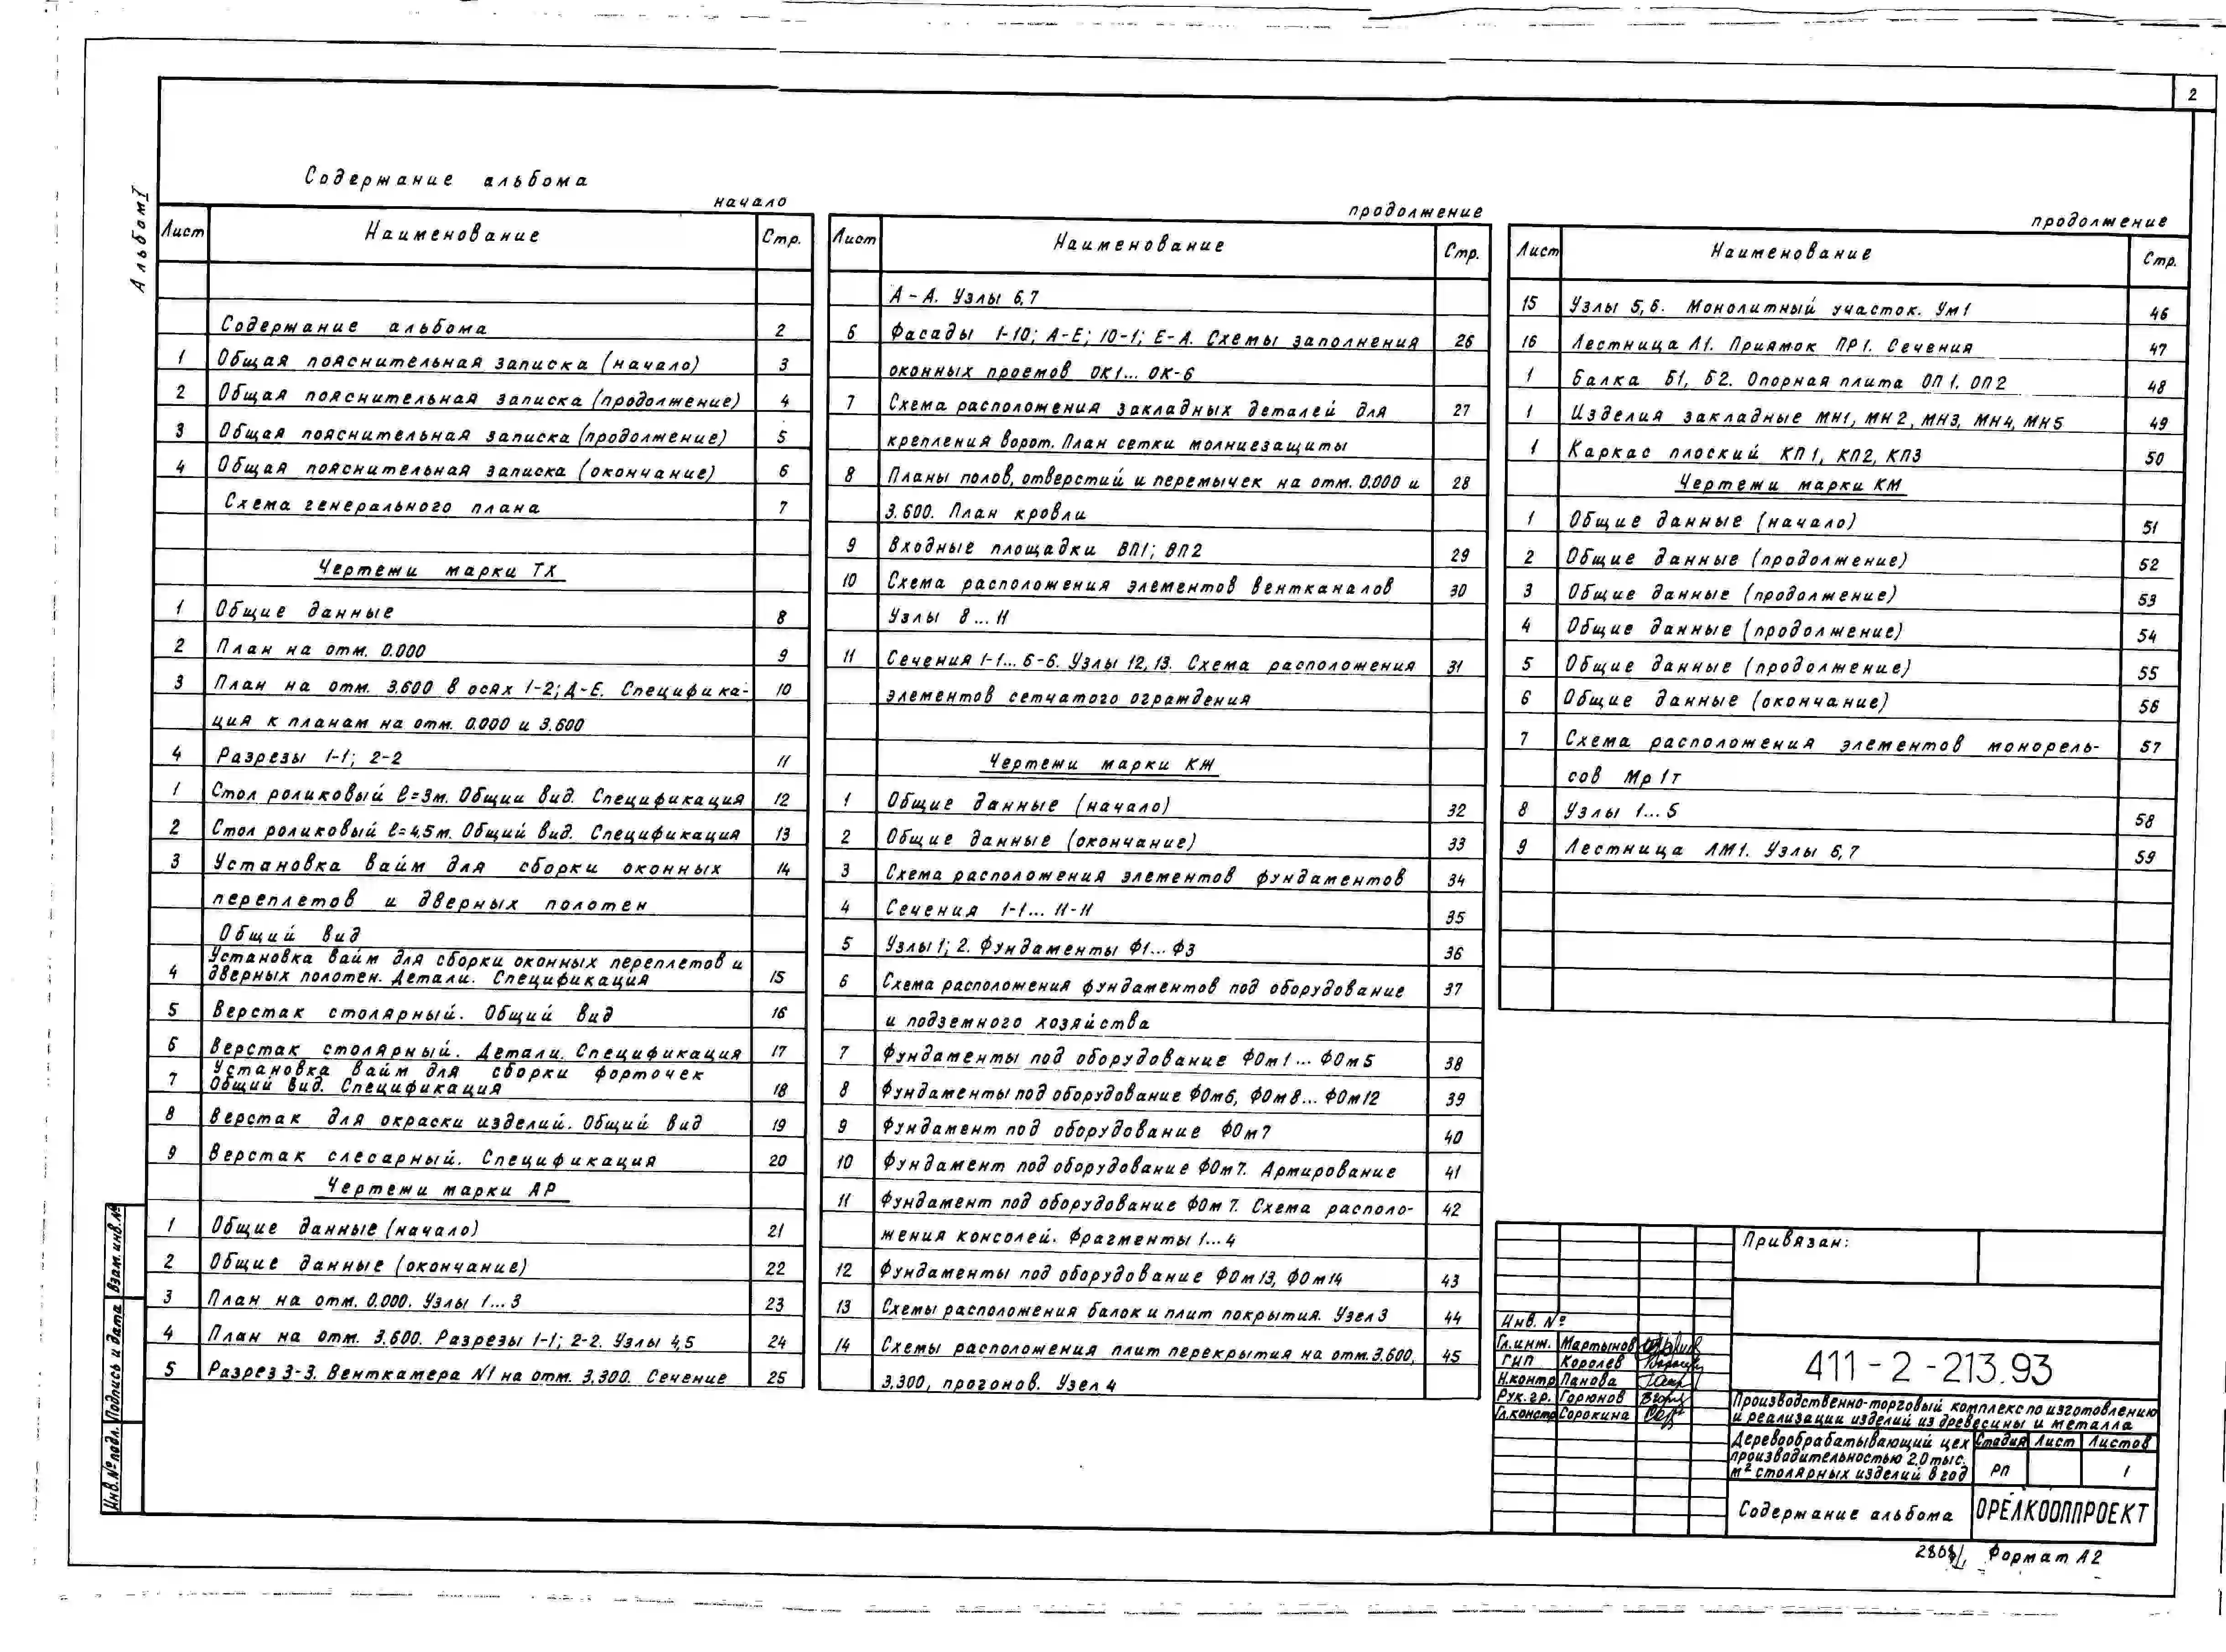 2
Альбом I
Содержание альбома
начало
Лист Наименование Стр.
Содержание альбома 2
1 Общая пояснительная записка (начало) 3
2 Общая пояснительная записка (продолжение) 4
3 Общая пояснительная записка (продолжение) 5
4 Общая пояснительная записка (окончание) 6
Схема генерального плана 7
Чертежи марки ТХ
1 Общие данные 8
2 План на отм. 0.000 9
3 План на отм. 3.600 в осях 1-2; Д-Е. Специфика- 10
ция к планам на отм. 0.000 и 3.600
4 Разрезы 1-1; 2-2 11
1 Стол роликовый ℓ=3м. Общии вид. Спецификация 12
2 Стол роликовый ℓ=4,5м. Общий вид. Спецификация 13
3 Установка вайм для сборки оконных 14
переплетов и дверных полотен
Общий вид
4 Установка вайм для сборки оконных переплетов и
дверных полотен. Детали. Спецификация 15
5 Верстак столярный. Общий вид 16
6 Верстак столярный. Детали. Спецификация 17
7 Установка вайм для сборки форточек
Общий вид. Спецификация 18
8 Верстак для окраски изделий. Общий вид 19
9 Верстак слесарный. Спецификация 20
Чертежи марки АР
1 Общие данные (начало) 21
2 Общие данные (окончание) 22
3 План на отм. 0.000. Узлы 1...3 23
4 План на отм. 3.600. Разрезы 1-1; 2-2. Узлы 4,5 24
5 Разрез 3-3. Венткамера N1 на отм. 3.300. Сечение 25
продолжение
Лист Наименование Стр.
А-А. Узлы 6,7
6 Фасады 1-10; А-Е; 10-1; Е-А. Схемы заполнения 26
оконных проемов ОК1... ОК-6
7 Схема расположения закладных деталей для 27
крепления ворот. План сетки молниезащиты
8 Планы полов, отверстий и перемычек на отм. 0.000 и 28
3.600. План кровли
9 Входные площадки ВП1; ВП2 29
10 Схема расположения элементов вентканалов 30
Узлы 8...11
11 Сечения 1-1... 6-6. Узлы 12,13. Схема расположения 31
элементов сетчатого ограждения
Чертежи марки КЖ
1 Общие данные (начало) 32
2 Общие данные (окончание) 33
3 Схема расположения элементов фундаментов 34
4 Сечения 1-1... 11-11 35
5 Узлы 1; 2. Фундаменты Ф1... Ф3 36
6 Схема расположения фундаментов под оборудование 37
и подземного хозяйства
7 Фундаменты под оборудование ФОм1... ФОм5 38
8 Фундаменты под оборудование ФОм6, ФОм8... ФОм12 39
9 Фундамент под оборудование ФОм7 40
10 Фундамент под оборудование ФОм7. Армирование 41
11 Фундамент под оборудование ФОм7. Схема располо- 42
жения консолей. Фрагменты 1...4
12 Фундаменты под оборудование ФОм13, ФОм14 43
13 Схемы расположения балок и плит покрытия. Узел 3 44
14 Схемы расположения плит перекрытия на отм. 3.600, 45
3.300, прогонов. Узел 4
продолжение
Лист Наименование Стр.
15 Узлы 5,6. Монолитный участок. Ум1 46
16 Лестница Л1. Приямок ПР1. Сечения 47
1 Балка Б1, Б2. Опорная плита ОП1. ОП2 48
1 Изделия закладные МН1, МН2, МН3, МН4, МН5 49
1 Каркас плоский КП1, КП2, КП3 50
Чертежи марки КМ
1 Общие данные (начало) 51
2 Общие данные (продолжение) 52
3 Общие данные (продолжение) 53
4 Общие данные (продолжение) 54
5 Общие данные (продолжение) 55
6 Общие данные (окончание) 56
7 Схема расположения элементов монорель- 57
сов Мр 1т
8 Узлы 1...5 58
9 Лестница ЛМ1. Узлы 6,7 59
Взам. инв. №
Подпись и дата
Инв. № подл.
Привязан:
Инв. №
Гл. инж. Мартынов
ГИП Королев
Н.контр Панова
Рук. гр. Горюнов
Гл.констр Сорокина
411-2-213.93
Производственно-торговый комплекс по изготовлению
и реализации изделий из древесины и металла
Деревообрабатывающий цех
производительностью 2.0 тыс.
м² столярных изделий в год
Стадия Лист Листов
РП 1
Содержание альбома
ОРЁЛКООППРОЕКТ
Формат А2